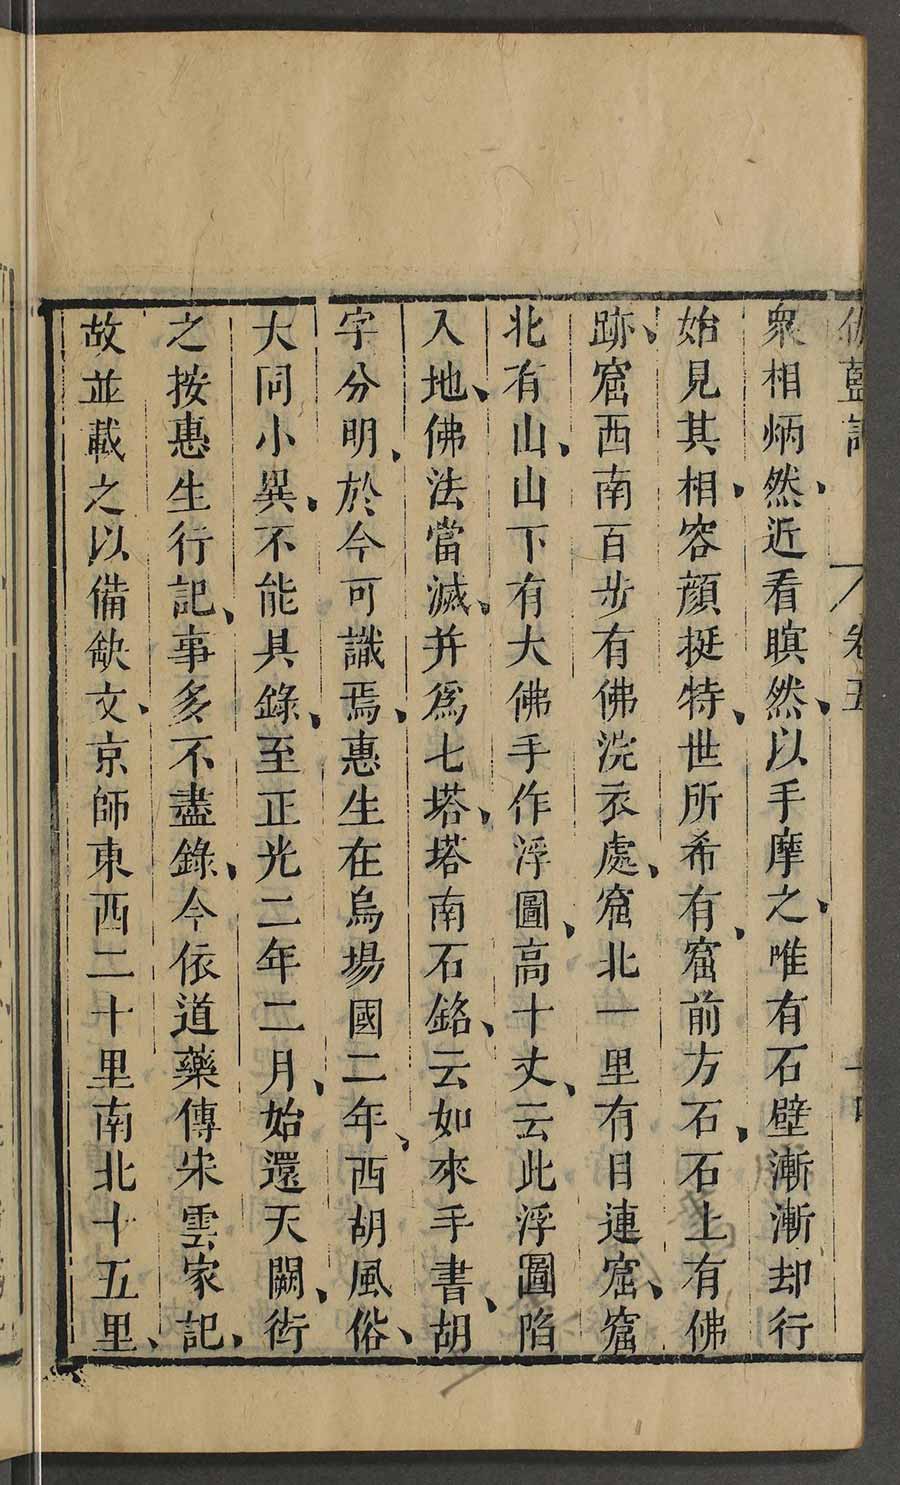 伽藍記 卷五 十四
衆相炳然近看瞑然以手摩之唯有石壁漸漸却行
始見其相容顏挺特世所希有窟前方石石上有佛
跡窟西南百步有佛浣衣處窟北一里有目連窟窟
北有山山下有大佛手作浮圖高十丈云此浮圖陷
入地佛法當滅并爲七塔塔南石銘云如來手書胡
字分明於今可識焉惠生在烏場國二年西胡風俗
大同小異不能具錄至正光二年二月始還天闕衒
之按惠生行記事多不盡錄今依道藥傳宋雲家記
故並載之以備缺文京師東西二十里南北十五里